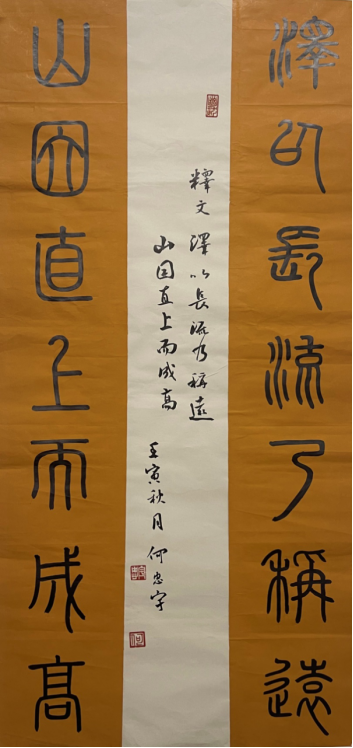 澤以長流乃稱遠
釋文 澤以長流乃稱遠
山因直上而成高
壬寅秋月 何忠
山因直上而成高